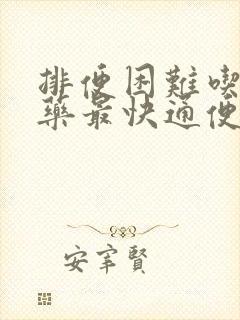 排便困難喫
藥最快通便
安宰賢